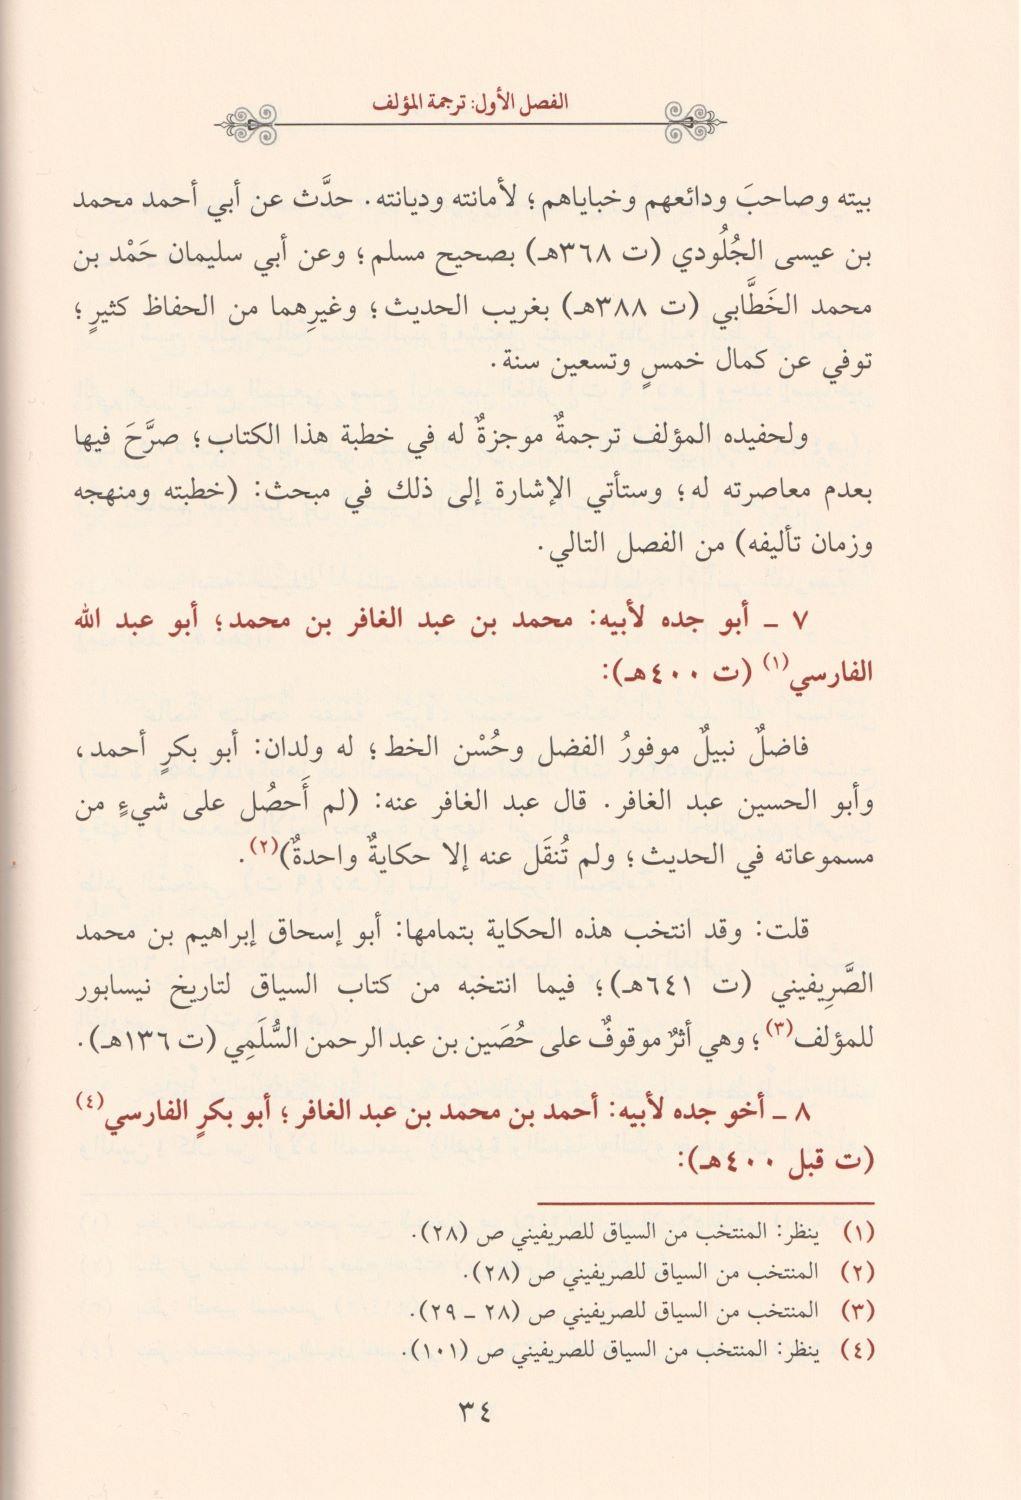 الفصل الأول: ترجمة المؤلف
بيته وصاحبَ ودائعهم وخباياهم؛ لأمانته وديانته. حدَّث عن أبي أحمد محمد
بن عيسى الجُلُودي (ت ٣٦٨هـ) بصحيح مسلم؛ وعن أبي سليمان حَمْد بن
محمد الخَطَّابي (ت ٣٨٨هـ) بغريب الحديث؛ وغيرِهما من الحفاظ كثيرٍ؛
توفي عن كمال خمسٍ وتسعين سنة.
ولحفيده المؤلف ترجمةٌ موجزةٌ له في خطبة هذا الكتاب؛ صرَّحَ فيها
بعدم معاصرته له؛ وستأتي الإشارة إلى ذلك في مبحث: (خطبته ومنهجه
وزمان تأليفه) من الفصل التالي.
٧ ـ أبو جده لأبيه: محمد بن عبد الغافر بن محمد؛ أبو عبد الله
الفارسي(١) (ت ٤٠٠هـ):
فاضلٌ نبيلٌ موفورُ الفضل وحُسْن الخط؛ له ولدان: أبو بكرٍ أحمد،
وأبو الحسين عبد الغافر. قال عبد الغافر عنه: (لم أَحصُل على شيءٍ من
مسموعاته في الحديث؛ ولم تُنقَل عنه إلا حكايةٌ واحدةٌ)(٢).
قلت: وقد انتخب هذه الحكاية بتمامها: أبو إسحاق إبراهيم بن محمد
الصَّرِيفيني (ت ٦٤١هـ)؛ فيما انتخبه من كتاب السياق لتاريخ نيسابور
للمؤلف(٣)؛ وهي أثرٌ موقوفٌ على حُصَين بن عبد الرحمن السُّلَمِي (ت ١٣٦هـ).
٨ ـ أخو جده لأبيه: أحمد بن محمد بن عبد الغافر؛ أبو بكرٍ الفارسي(٤)
(ت قبل ٤٠٠هـ):
(١) ينظر: المنتخب من السياق للصريفيني ص (٢٨).
(٢) المنتخب من السياق للصريفيني ص (٢٨).
(٣) المنتخب من السياق للصريفيني ص (٢٨ ـ ٢٩).
(٤) ينظر: المنتخب من السياق للصريفيني ص (١٠١).
٣٤